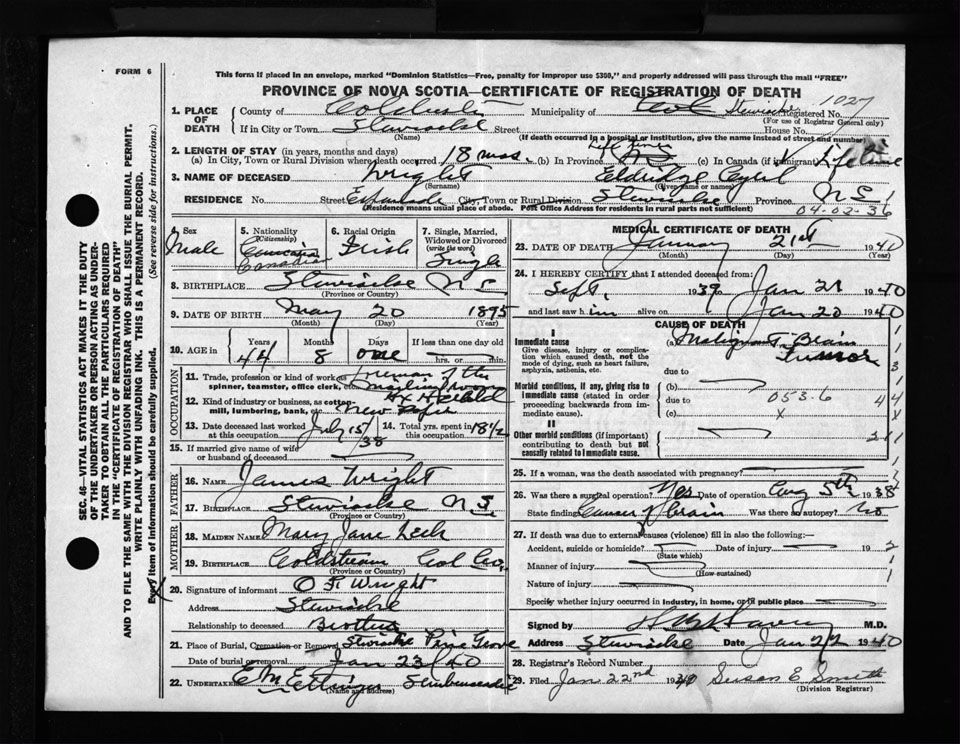 FORM 6
This form if placed in an envelope, marked "Dominion Statistics—Free, penalty for improper use $300," and properly addressed will pass through the mail "FREE"
PROVINCE OF NOVA SCOTIA—CERTIFICATE OF REGISTRATION OF DEATH
1. PLACE OF DEATH County of Colchester Municipality of Stewiacke Registered No. 1027
(For use of Registrar General only)
If in City or Town Stewiacke Street House No.
(If death occurred in a hospital or institution, give the name instead of street and number)
2. LENGTH OF STAY (in years, months and days)
(a) In City, Town or Rural Division where death occurred 18 mos. (b) In Province Life time NS (c) In Canada (if immigrant) Life time
3. NAME OF DECEASED Wright Eldridge Cyril
(Surname) (Given name or names)
RESIDENCE No. Street Esplanade City, Town or Rural Division Stewiacke Province N S
(Residence means usual place of abode. Post Office Address for residents in rural parts not sufficient)
04-02-36
4. Sex Male
5. Nationality (Citizenship) Canadian
6. Racial Origin Irish
7. Single, Married, Widowed or Divorced (write the word) Single
8. BIRTHPLACE Stewiacke N S
(Province or Country)
9. DATE OF BIRTH May 20 1895
(Month) (Day) (Year)
10. AGE in Years 44 Months 8 Days one If less than one day hrs. or min.
OCCUPATION
11. Trade, profession or kind of work as spinner, teamster, office clerk, etc. Foreman of the mailing room
12. Kind of industry or business, as cotton-mill, lumbering, bank, etc. Hx Herald New Paper
13. Date deceased last worked at this occupation July 15/38
14. Total yrs. spent in this occupation 18½
15. If married give name of wife or husband of deceased
FATHER
16. NAME James Wright
17. BIRTHPLACE Stewiacke N S.
(Province or Country)
MOTHER
18. MAIDEN NAME Mary Jane
19. BIRTHPLACE Coldstream Col Co.
(Province or Country)
20. Signature of informant O F Wright
Address Stewiacke
Relationship to deceased Brother
21. Place of Burial, Cremation or Removal Stewiacke Pine Grove
Date of burial or removal Jan 23/40
22. UNDERTAKER E M Ettinger Shubenacadie
(Name and Address)
MEDICAL CERTIFICATE OF DEATH
23. DATE OF DEATH January 21st 1940
(Month) (Day) (Year)
24. I HEREBY CERTIFY that I attended deceased from:
Sept. 1939 to Jan 21 1940
and last saw him alive on Jan 20 1940
CAUSE OF DEATH
I
Immediate cause (a) Malignant Brain Tumor
Give disease, injury or complication which caused death, not the mode of dying, such as heart failure, asphyxia, asthenia, etc.
due to
Morbid conditions, if any, giving rise to immediate cause (stated in order proceeding backwards from immediate cause). (b)
due to 053-6
(c) x
II
Other morbid conditions (if important) contributing to death but not causally related to immediate cause.
25. If a woman, was the death associated with pregnancy?
26. Was there a surgical operation? Yes Date of operation Aug 5th 1938
State finding Cancer of brain Was there an autopsy? No
27. If death was due to external causes (violence) fill in also the following:
Accident, suicide or homicide? Date of injury 19
(State which)
Manner of injury
(How sustained)
Nature of injury
Specify whether injury occurred in industry, in home, or in public place
Signed by M.D.
Address Stewiacke Date Jan 22 1940
28. Registrar's Record Number
29. Filed Jan 22nd 1940 Susan E Smith
(Division Registrar)
SEC. 46—VITAL STATISTICS ACT MAKES IT THE DUTY
OF THE UNDERTAKER OR PERSON ACTING AS UNDER-
TAKER TO OBTAIN ALL THE PARTICULARS REQUIRED
IN THE "CERTIFICATE OF REGISTRATION OF DEATH"
AND TO FILE THE SAME WITH THE DIVISION REGISTRAR WHO SHALL ISSUE THE BURIAL PERMIT.
WRITE PLAINLY WITH UNFADING INK. THIS IS A PERMANENT RECORD.
Every item of information should be carefully supplied. (See reverse side for instructions.)